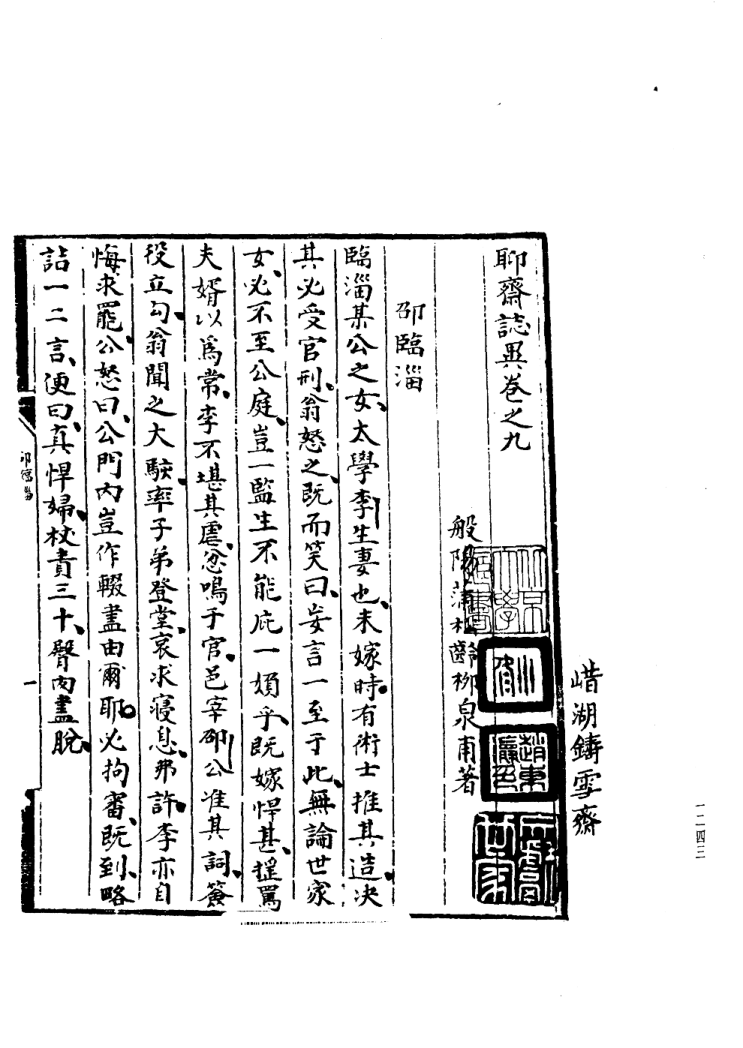 嵖湖鑄雪齋
聊齋誌異卷之九
般陽蒲松齡柳泉甫著
邵臨淄
臨淄某公之女、太學李生妻也、未嫁時、有術士推其造、决
其必受官刑、翁怒之、既而笑曰、妄言一至于此、無論世家
女、必不至公庭、豈一監生不能庇一婦乎、既嫁悍甚、捶罵
夫婿以爲常、李不堪其虐、忿鳴于官、邑宰邵公准其詞、簽
役立勾、翁聞之大駭、率子弟登堂、哀求寢息、弗許、李亦自
悔求罷、公怒曰、公門內豈作輟盡由爾耶、必拘審、既到、略
詰一二言、便曰、真悍婦、杖責三十、臀肉盡脫、
邵臨淄
一
一二四三